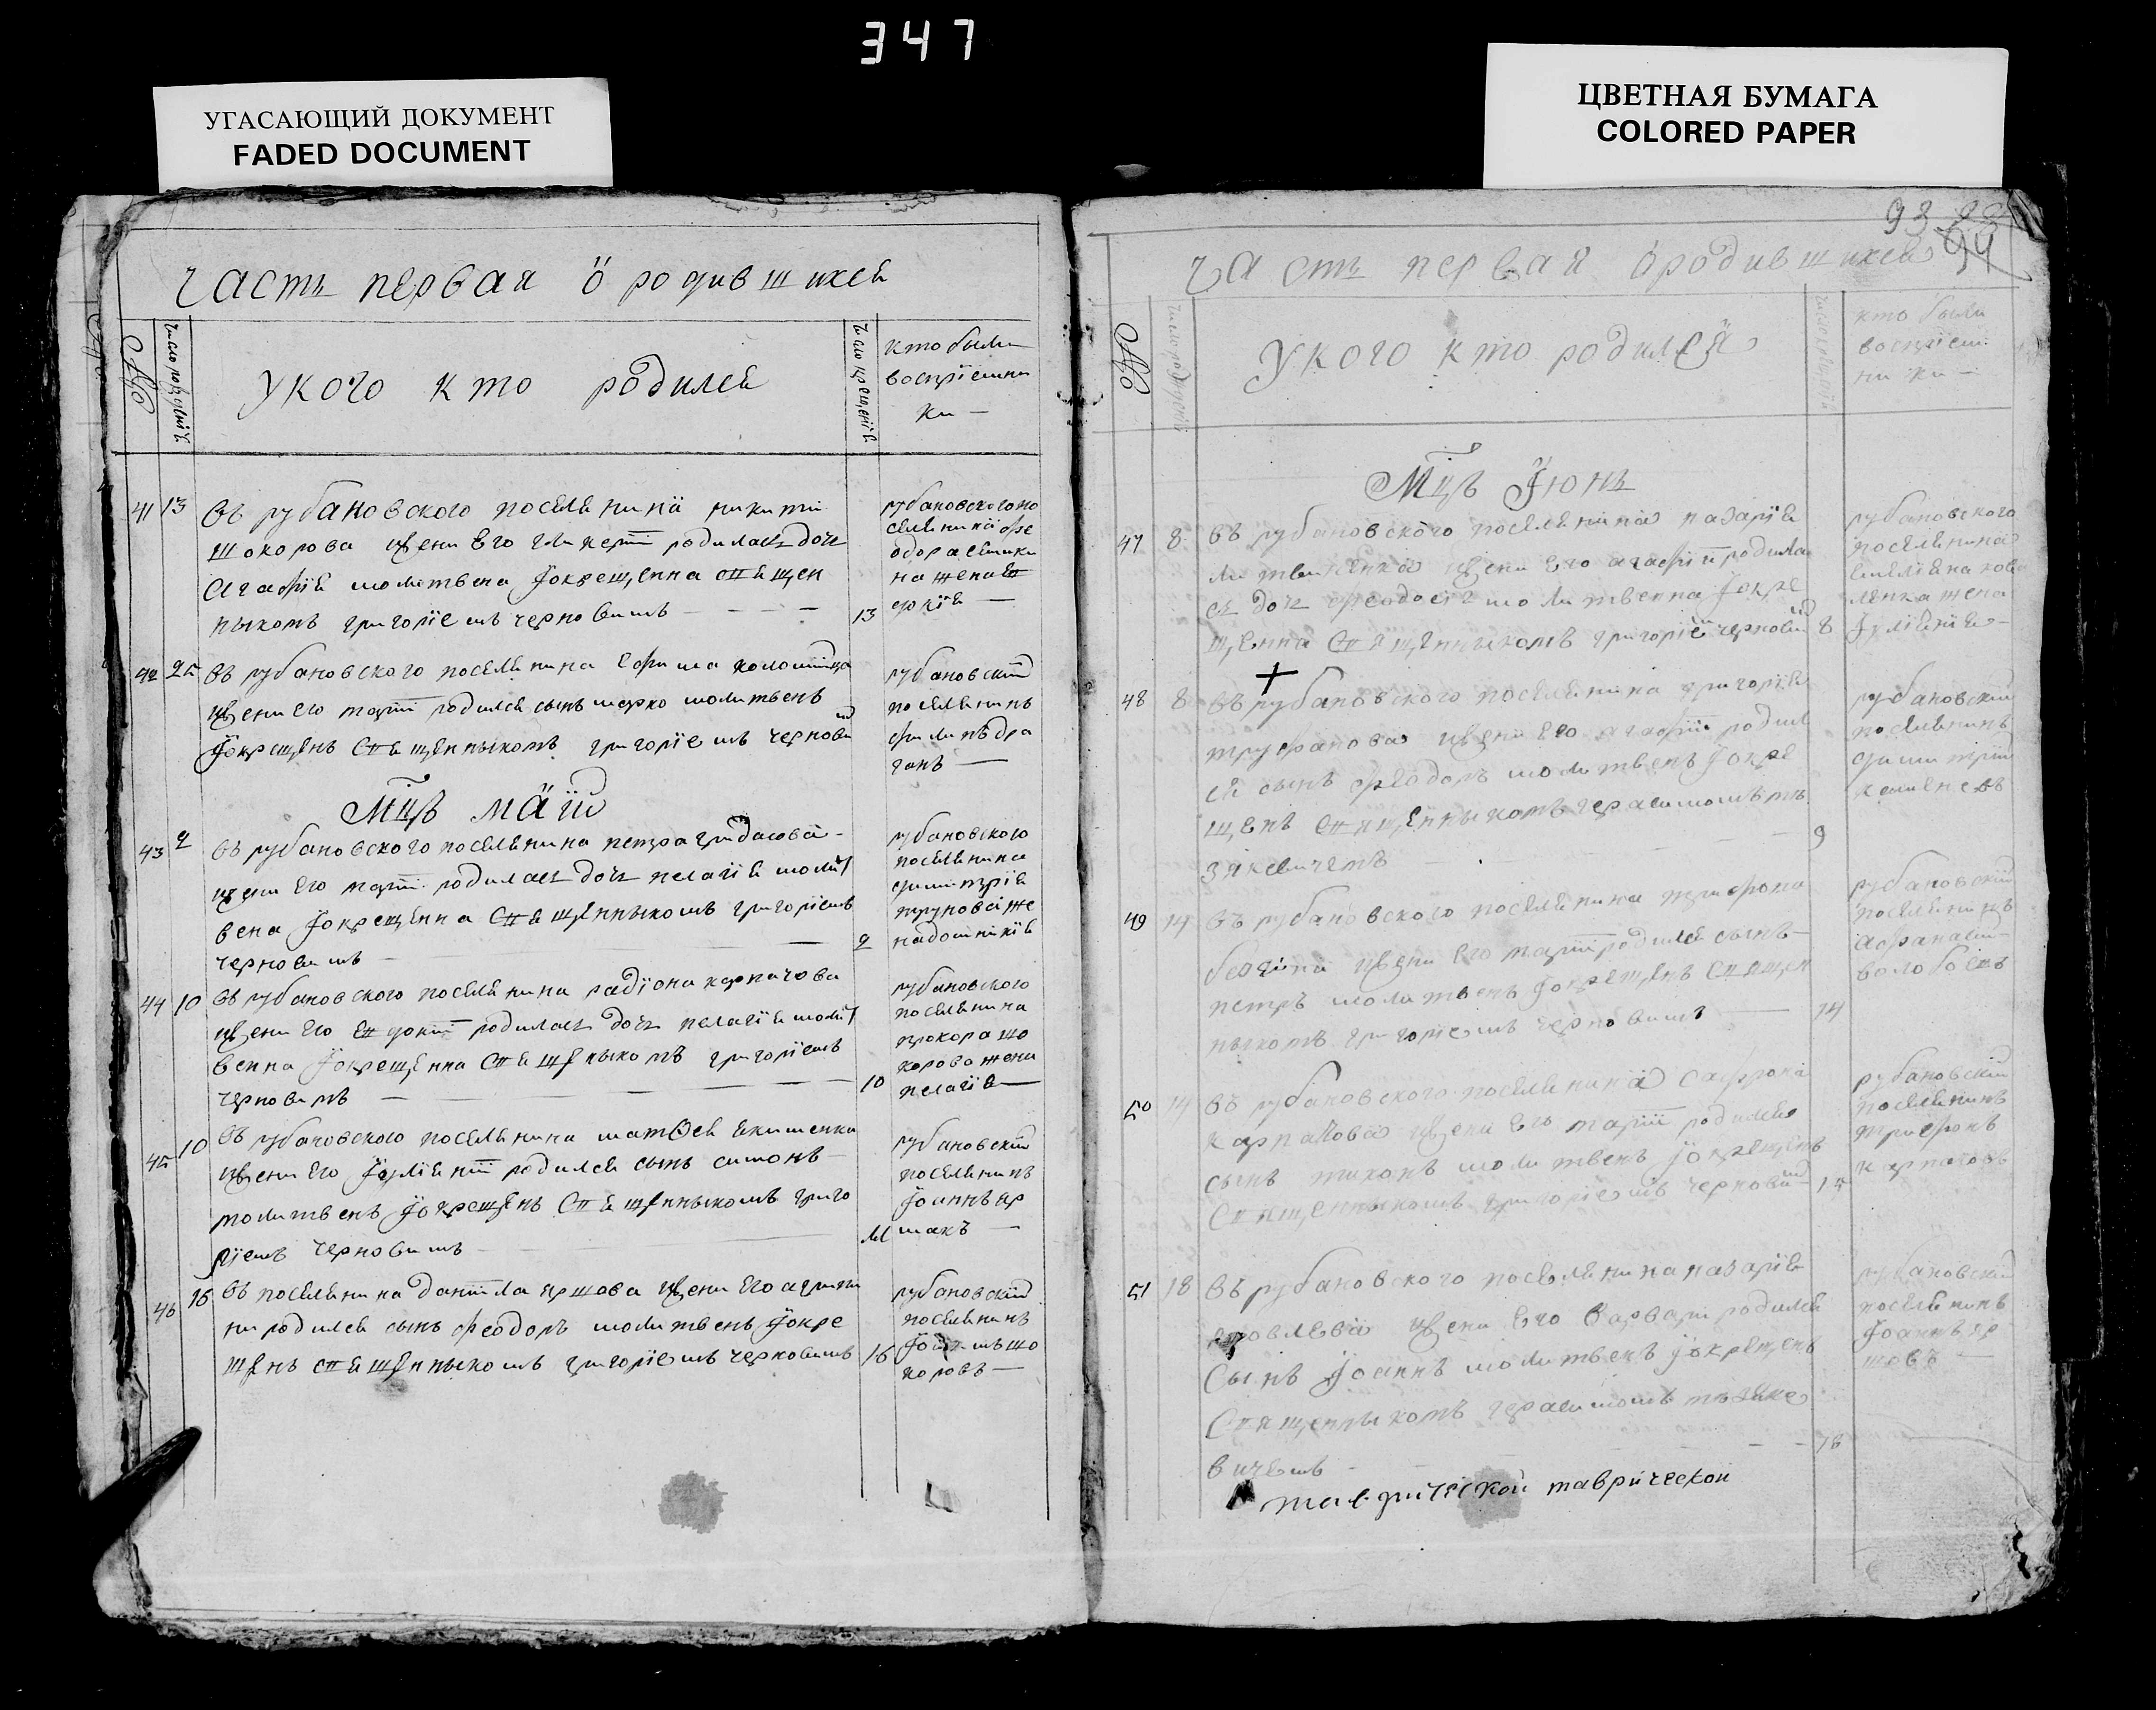 347
УГАСАЮЩИЙ ДОКУМЕНТ
FADED DOCUMENT
ЦВЕТНАЯ БУМАГА
COLORED PAPER
часть первая о родившихся
№
число рожденія
укого кто родился
число крещенія
кто были
воспріємни
ки —
41 13 въ рубановского поселянина никити
шокорова жени его гликеріи родилась дочь
агафія молитвена іокрещенна священ
ныкомъ григоріемъ черновимъ — 13
рубановского по
селянина фе
одора
на жена ев
докія —
42 25 въ рубановского поселянина ефима коломійца
жени его маріи родился сынъ марко молитвенъ
іокрещенъ священныкомъ григоріемъ чернови
рубановскій
поселянинъ
филипъ дра
ганъ —
Мцъ май
43 2 въ рубановского поселянина петра гридасова
жени его маріи родилась дочь пелагія молит
вена іокрещенна священныкомъ григоріемъ
черновимъ — 2
рубановского
поселянина
димитрія
трунова же
на домникія
44 10 въ рубановского поселянина радіона карпачова
жени его евдокіи родилась дочь пелагія молит
венна іокрещенна священыкомъ григоріемъ
черновимъ — 10
рубановского
поселянина
прокора шо
корова жена
пелагія —
45 10 въ рубановского поселянина матѳея якименка
жени его іуліяніи родился сынъ симонъ
молитвенъ іокрещенъ священныкомъ григо
ріемъ черновимъ — 11
рубановскій
поселянинъ
іоаннъ яр
макъ —
46 16 въ поселянина даніила яршова жени его агрипи
ни родился сынъ феодоръ молитвенъ іокре
щенъ священныкомъ григоріемъ черновимъ 16
рубановскій
поселянинъ
шо
коровъ —
93
94
часть первая о родившихся
№
число рожденія
укого кто родился
число крещенія
кто были
воспріємни
ки —
Мцъ іюнь
47 8 въ рубановского поселянина назарія
литвиненка жени его агафіи родила
сь дочь феодосія молитвенна іокре
щенна священныкомъ григоріемъ чернови 8
рубановского
поселянина
емеліяна кова
ленка жена
іуліянія —
+
48 8 въ рубановского поселянина григорія
труфанова жени его агафіи родил
ся сынъ феодоръ молитвенъ іокре
щенъ священныкомъ герасимомъ тъ
зякевичемъ — 9
рубановскій
поселянинъ
димитрій
каменевъ
49 14 въ рубановского поселянина трифона
жени его маріи родился сынъ
петръ молитвенъ іокрещенъ священ
ныкомъ григоріемъ черновимъ — 14
рубановскій
поселянинъ
афанасій
волобоевъ
50 14 въ рубановского поселянина сафрона
карпачова жени его маріи родился
сынъ тихонъ молитвенъ іокрещенъ
священныкомъ григоріемъ чернови 15
рубановскій
поселянинъ
трифонъ
карпачовъ
51 18 въ рубановского поселянина назарія
яковлева жени его варвари родился
сынъ іоаннъ молитвенъ іокрещенъ
священныкомъ герасимомъ тъзяке
вичемъ — 18
рубановскій
поселянинъ
іоаннъ яр
шовъ —
таврической таврической